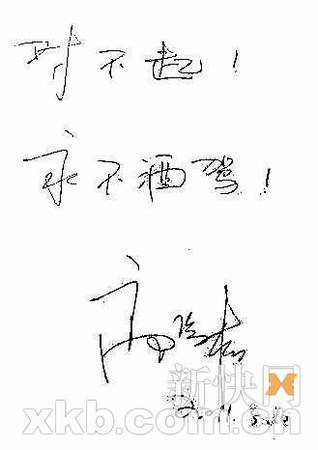 对不起！
永不酒驾！
高晓松
新快网
xkb.com.cn